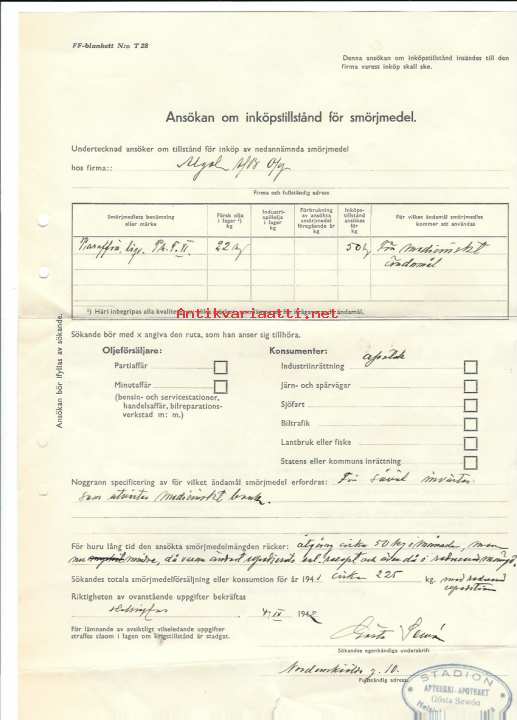 FF-blankett N:o T 28
Denna ansökan om inköpstillstånd insändes till den
firma varest inköp skall ske.
Ansökan om inköpstillstånd för smörjmedel.
Undertecknad ansöker om tillstånd för inköp av nedannämnda smörjmedel
hos firma:: Algol
Firma och fullständig adress
Smörjmedlets benämning
eller märke
Färsk olja
i lager ¹)
kg
Industri-
spillolja
i lager
kg
Förbrukning
av ansökta
smörjmedel
föregående år
kg
Inköps-
tillstånd
ansökes
för
kg
För vilket ändamål smörjmedlet
kommer att användas
Paraffin. liq. 22 kg 50 kg För medicinskt
ändamål
Antikvariaatti.net
¹) Häri inbegripas alla
Ansökan bör ifyllas av sökande.
Sökande bör med x angiva den ruta, som han anser sig tillhöra.
Oljeförsäljare:
Partiaffär
Minutaffär
(bensin- och servicestationer,
handelsaffär, bilreparations-
verkstad m: m.)
Konsumenter: apotek
Industriinrättning
Järn- och spårvägar
Sjöfart
Biltrafik
Lantbruk eller fiske
Statens eller kommuns inrättning
Noggrann specificering av för vilket ändamål smörjmedel erfordras: För såväl invärtes
som utvärtes medicinskt bruk.
För huru lång tid den ansökta smörjmedelmängden räcker: åtgång cirka 50 kg i månaden, men
nu mindre, då varan endast expedieras enl. recept och även då i reducerad mängd.
Sökandes totala smörjmedelförsäljning eller konsumtion för år 1941 cirka 225 kg. med reducerad
expedition
Riktigheten av ovanstående uppgifter bekräftas
Helsingfors IX 1942
För vilseledande uppgifter
straffes såsom i lagen om krigstillstånd är stadgat.
Gösta Sewón
Sökandes egenhändiga underskrift
Nordenskiöldsg. 10.
Fullständig adress
STADION
APTEEKKI-APOTEKET
Gösta Sewón